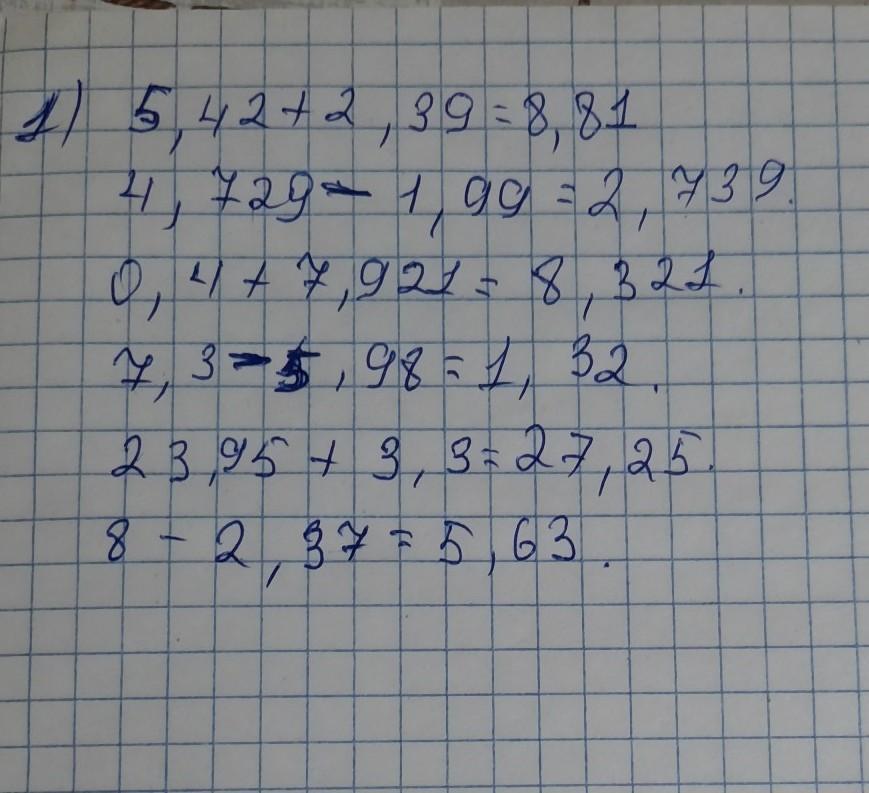 1) 5,42+2,39=8,81
4,729-1,99=2,739.
0,4+7,921=8,321.
7,3-5,98=1,32.
23,95+3,3=27,25.
8-2,37=5,63.